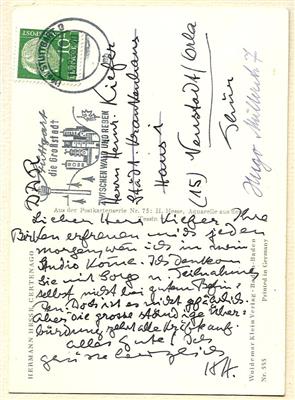 10
Stuttgart
die Großstadt
ZWISCHEN WALD UND REBEN
DDR
Herrn Henri Kiefer
Städt. Krankenhaus
Haus I
(15) Neustadt/Orla
Thür
Aus der Postkartenserie Nr. 75: H. Hesse, Aquarelle aus dem
Lieber Herr Kiefer, Ihre
Birken erfreuen mich jeden
morgen wenn ich in mein
Studio komme. Ich denke an
Sie mit Sorge u. Teilnahme,
selbst nicht bei gutem
Doch ist es nicht gefährlich
aber die grosse ständige Über-
bürdung zehrt alle Kräfte auf.
alles Gute! Ich
grüsse herzlich
HERMANN HESSE, CERTENAGO
Waldemar Klein Verlag · Baden-Baden
Printed in Germany
Nr. 555